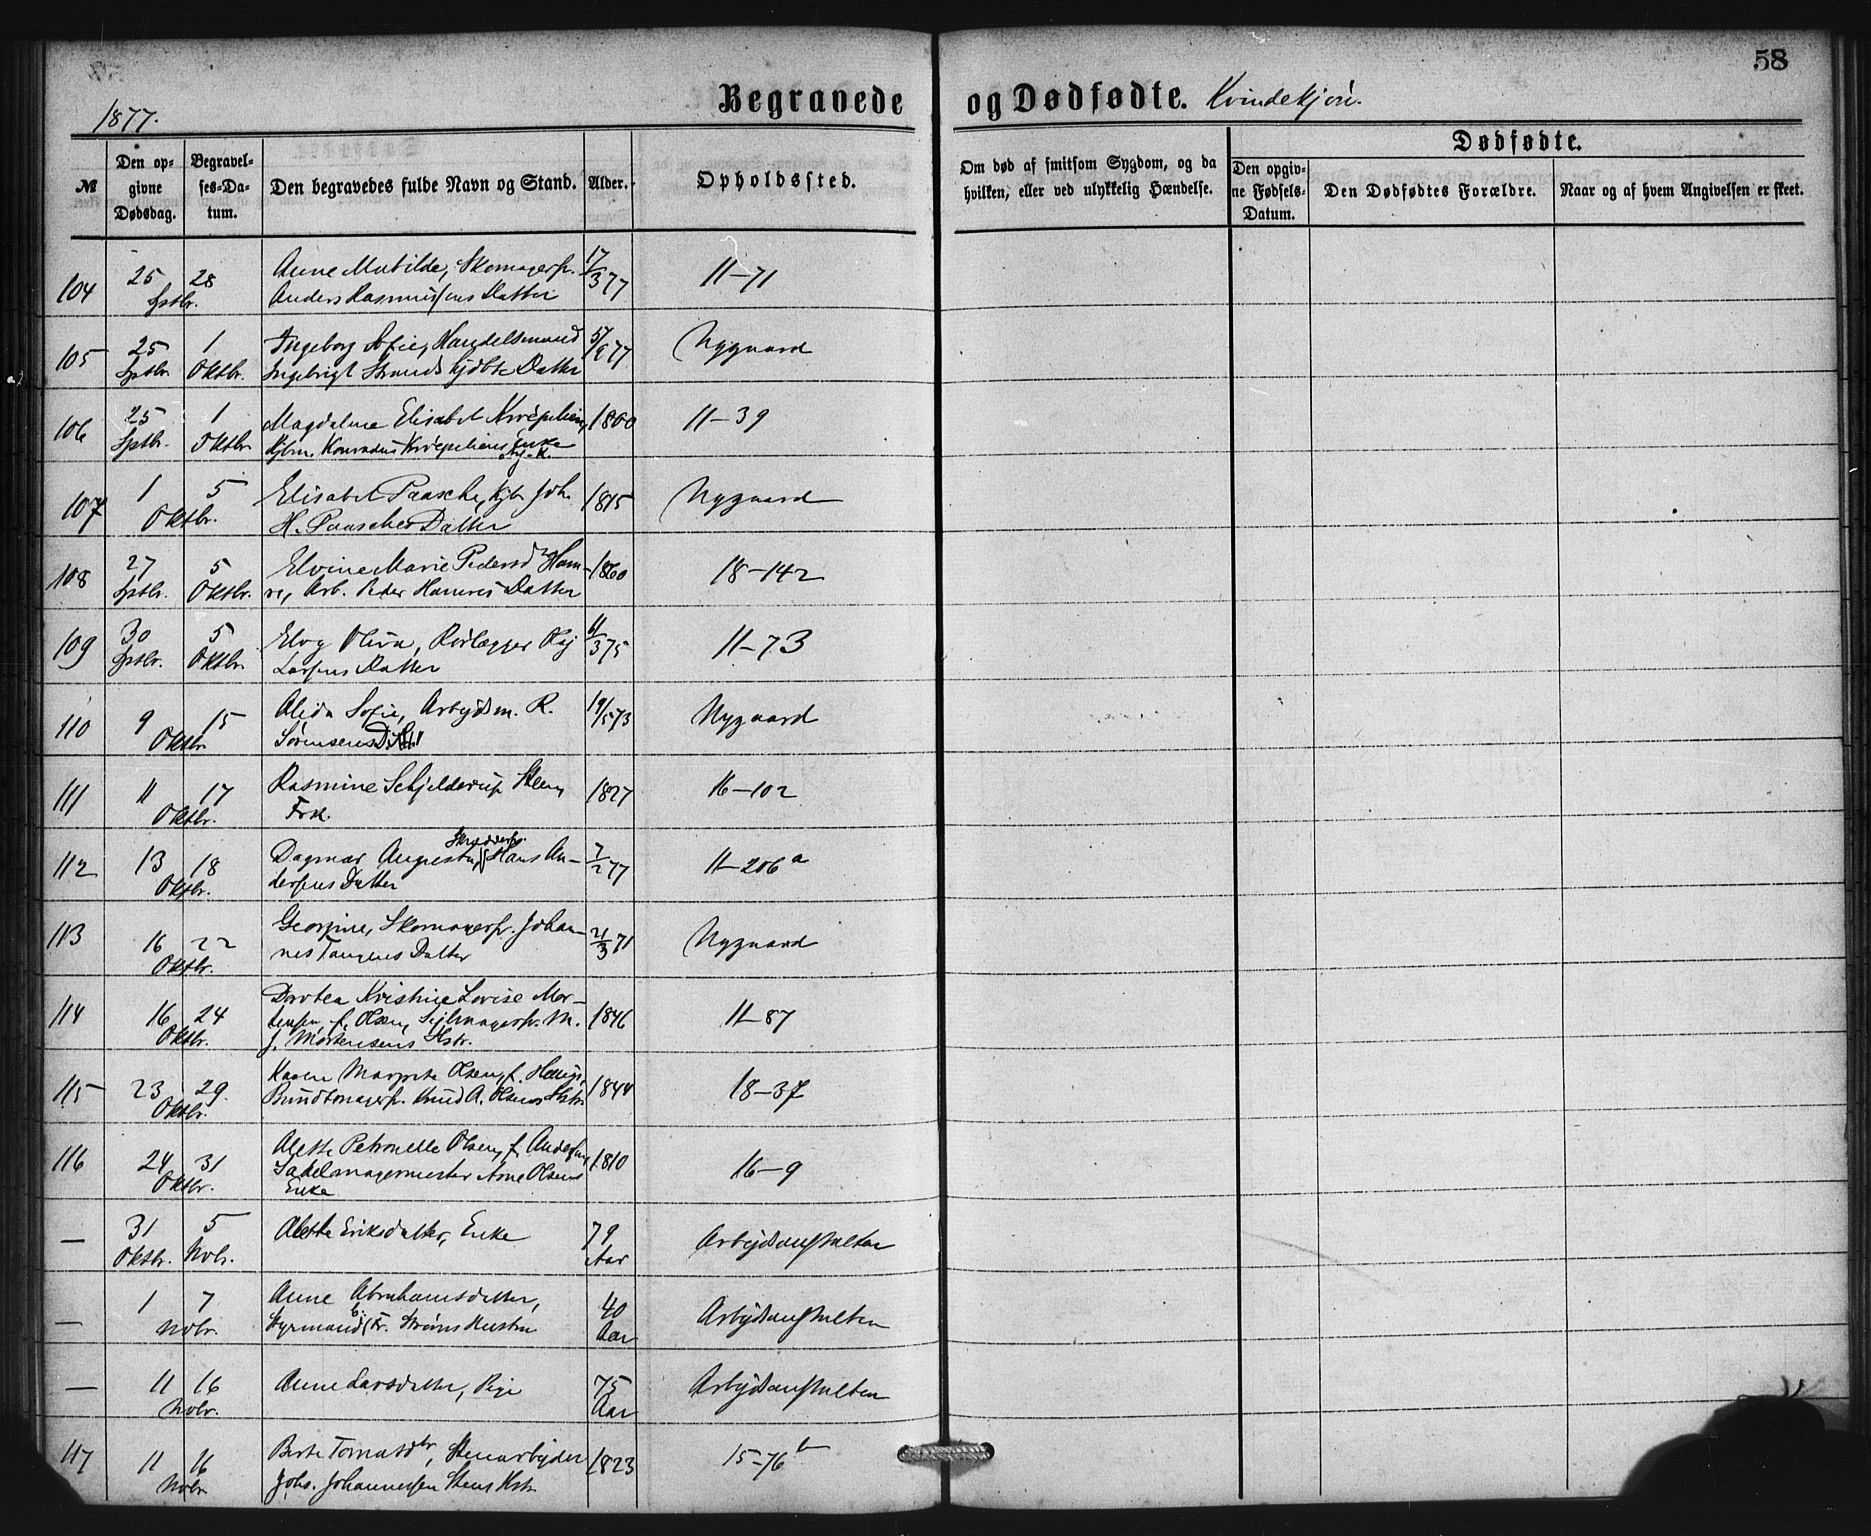 58
1877.
Begravede og Dødfødte. Kvindekjøn.
№
Den opgivne Dødsdag.
Begravelses-Datum.
Den begravedes fulde Navn og Stand.
Alder.
Opholdssted.
Om død af smitsom Sygdom, og da hvilken, eller ved ulykkelig Hændelse.
Dødfødte.
Den opgivne Fødsels-Datum.
Den Dødfødtes Forældre.
Naar og af hvem Angivelsen er skeet.
104 25 28 Anne Matilde, Skomagersv. 17/3 77 11–71
Sptbr. Anders Rasmussens Datter
105 25 1 Ingeborg Sofie, Handelsmand 5/9 77 Nygaard
Sptbr. Oktbr. Ingebrigt Datter
106 25 1 Magdalene Elisabet 1800 11–39
Sptbr. Oktbr. Konradus Enke
107 1 5 Elisabet Paasche, Kjbm Joh. 1815 Nygaard
Oktbr. H. Paasches Datter
108 27 5 Elvine Marie Pedersd Ham- 1860 18–142
Sptbr. Oktbr. re, Arb. Peder Hamres Datter
109 30 5 Elvy Oliva, Rørlægger 11/3 75 11–73
Sptbr. Oktbr. Larsens Datter
110 9 15 Alida Sofie, Arbejdsm. R. 19/5 73 Nygaard
Oktbr. Sørensens Datter
111 11 17 Rasmine Schjelderup Steen, 1827 16–102
Oktbr. Frk.
112 13 18 Dagmar Augusta, Skrædersv. Hans An- 7/2 77 11–206a
Oktbr. dersens Datter
113 16 22 Georgine, Skomagersv. Johan- 21/3 71 Nygaard
Oktbr. nes Tangens Datter
114 16 24 Dortea Kristine Lovise Mor- 1846 11–87
Oktbr. tensen, f. Olsen, Sejlmagersv. M.
J. Mortensens Hstr.
115 23 29 Karen Margrete Olsen, f. 1844 18–37
Oktbr. Bundtmagersv. Knud A. Olsens Hstr
116 24 31 Alette Petronelle Olsen, f. Andersen, 1810 16–9
Oktbr. Sadelmagermester Arne Olsens
Enke
— 31 5 Aletta Eriksdatter, Enke 79 Arbejdsanstalten
Oktbr. Novbr. Aar
— 1 7 Anne Abrahamsdatter, 40 Arbejdsanstalten
Novbr. Styrmand Fr. Strøms Hustru Aar
— 11 16 Anne Larsdatter, Pige 75 Arbejdsanstalten
Novbr. Aar
117 11 16 Berte Tomasdtr, Stenarbejder 1823 15–76b
Novbr Johs. Johannessen Stens Hstr